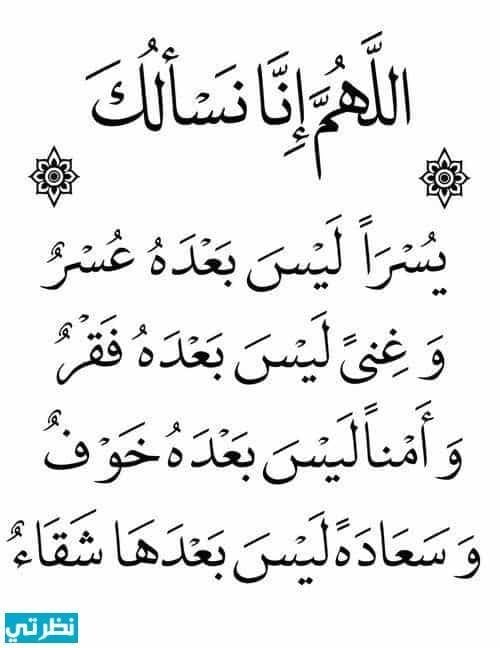 اللَّهُمَّ إِنَّا نَسْأَلُكَ
يُسْرَاً لَيْسَ بَعْدَهُ عُسْرٌ
وَ غِنىً لَيْسَ بَعْدَهُ فَقْرٌ
وَ أَمْناً لَيْسَ بَعْدَهُ خَوْفٌ
وَ سَعَادَهً لَيْسَ بَعْدَهَا شَقَاءٌ
نظرتي